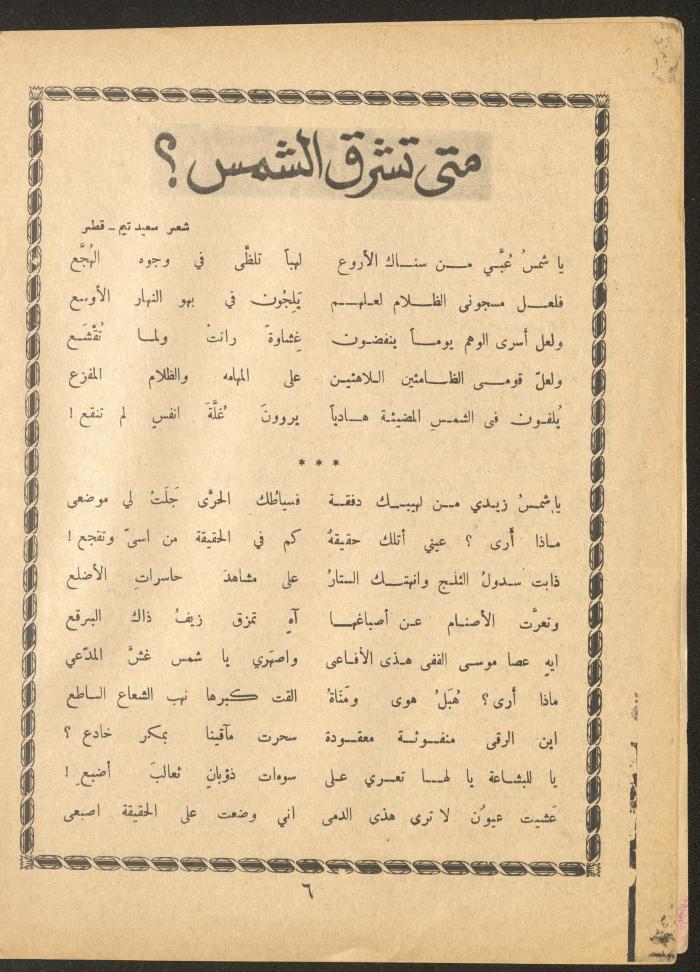 متى تشرق الشمس؟
شعر سعيد تيم ـ قطر
يا شمسُ عُبَّي مـن سنـاك الأروع لهباً تلظَّى في وجوه الهُجَّع
فلعـل مسجونى الظـلام لعـلهـم يَلِجُون في بهو النهار الأوسع
ولعل أسرى الوهم يومـاً ينفضـون غِشاوةً رانتْ ولمـا تُقْشَـع
ولعلّ قومـى الظـامئين الـلاهثيـن على المهامه والظلام المفزع
يُلفـون فى الشمسِ المضيئـة هـادياً يروونَ غُلَّةَ انفسٍ لم تنقع !
* * *
يا شمسُ زيـدي مـن لهيبـك دفقـة فسياطُك الحرَّى جَلَتْ لي موضعى
مـاذا أَرى ؟ عيني أتلك حقيقةٌ كم في الحقيقة من اسىً وتفجع !
ذابت سـدولُ الثلـج وانهتـك الستارُ على مشاهدَ حاسراتِ الأضلع
وتعرَّت الأصنـام عـن أصباغهـا آهٍ تمزق زيفُ ذاك البرقع
ايهِ عصا موسـى القفى هـذى الأفـاعى واصهَري يا شمس غشَّ المدّعي
ماذا أرى؟ هُبَلُ هوى ومَنَاةُ القت كبرها نهب الشعاع الساطع
اين الرقى منفـوثـة معقـودة سحرت مآقينا بمكر خادع ؟
يا للبشـاعة يا لهـا تعـري علـى سوءات ذؤبانٍ ثعالبَ أضبع !
عَشيت عيونٌ لا ترى هذى الدمى اني وضعت على الحقيقة اصبعى
٦